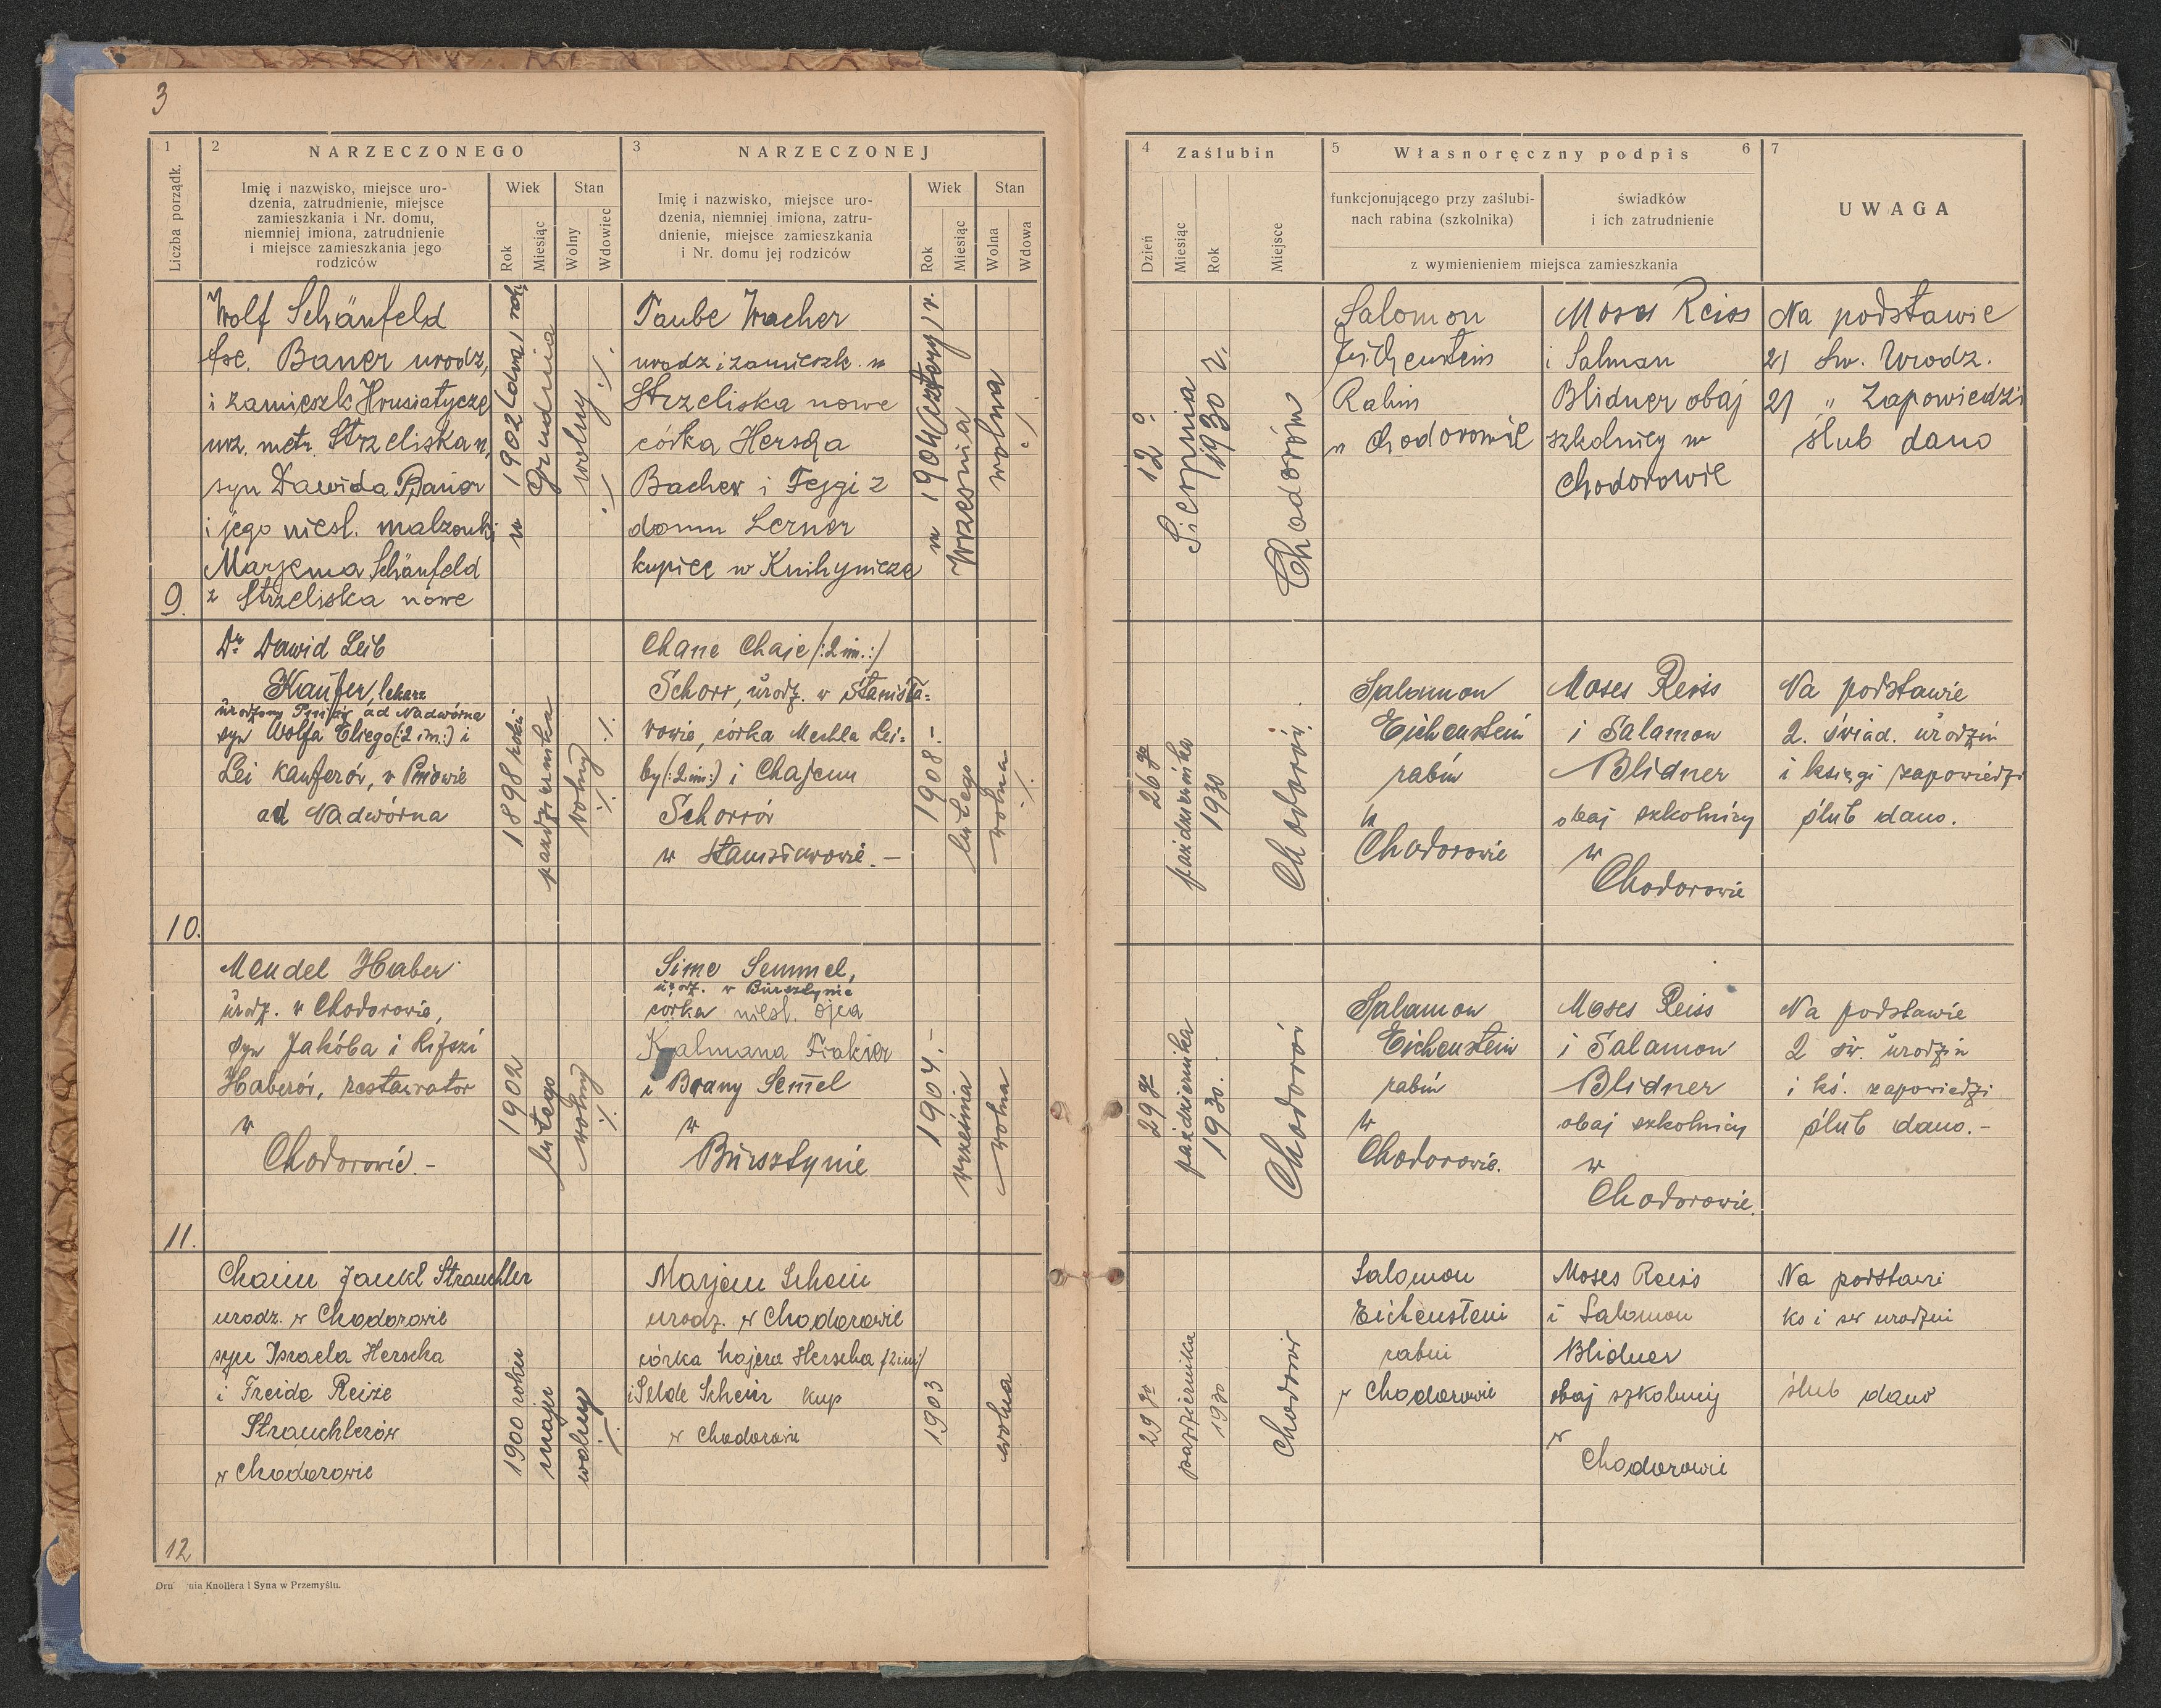 3
1
2
NARZECZONEGO
3
NARZECZONEJ
Liczba porządk.
Imię i nazwisko, miejsce uro-
dzenia, zatrudnienie, miejsce
zamieszkania i Nr. domu,
niemniej imiona, zatrudnienie
i miejsce zamieszkania jego
rodziców
Wiek
Stan
Rok
Miesiąc
Wolny
Wdowiec
Imię i nazwisko, miejsce uro-
dzenia, niemniej imiona, zatru-
dnienie, miejsce zamieszkania
i Nr. domu jej rodziców
Wiek
Stan
Rok
Miesiąc
Wolna
Wdowa
4
Zaślubin
5
Własnoręczny podpis
6
7
Dzień
Miesiąc
Rok
Miejsce
funkcjonującego przy zaślubi-
nach rabina (szkolnika)
świadków
i ich zatrudnienie
z wymienieniem miejsca zamieszkania
UWAGA
9.
Wolf Schänfeld
fse. Baner urodz,
i zamieszk Hrusiatycze
urz. metr. Strzeliska n,
syn Dawida Baner
i jego niesl. malzonki
Marjema Schänfeld
z Strzeliska nowe
w 1902 (dwa) rok,
Grudnia
wolny
Taube Wacher
urodz i zamieszk. w
Strzeliska nowe
córka Herscha
Bacher i Fejgi z
domu Lerner
kupiec w Knihynicze
w 1904 (cztery) r.
Wrzesnia
wolna
12
Sierpnia
1930 r.
Chodorów
Salomon
Eichenstein
Rabin
w Chodorowie
Moses Reiss
i Salman
Blidner obaj
szkolnicy w
Chodorowie
Na podstawie
2) św. Urodz.
2) " Zapowiedzi
ślub dano
10.
Dr Dawid Leib
Kaufer, lekarz
urodzony Pniów ad Nadwórna
syn Wolfa Eliego (:2 im.:) i
Lei Kauferów, w Pniowie
ad Nadwórna
1898 roku
pazdziernika
wolny
Chane Chaje (:2 im.:)
Schorr, urodz. w Stanisła=
wowie, córka Mechla Lei=
by (:2 im:) i Chajem
Schorrów
w Stanisławowie. –
1908.–
lutego
wolna
26 go
października
1930
Chodorów.
Salamon
Eichenstein
rabin
w
Chodorowie
Moses Reiss
i Salamon
Blidner
obaj szkolnicy
w
Chodorowie
Na podstawie
2. świad. urodzin
i księgi zapowiedzi
ślub dano.
11.
Mendel Haber
urodz. w Chodorowie,
syn Jakóba i Rifszi
Haberów, restaurator
w
Chodorowie. –
1902
lutego
wolny
Sime Semmel,
urodz. w Bursztynie
córka niesl. ojca
Kalmana Frakier
i Brany Semel
w
Bursztynie
1904. –
września
wolna
29 go
października
1930.
Chodorów
Salamon
Eichenstein
rabin
w
Chodorowie.
Moses Reiss
i Salamon
Blidner
obaj szkolnicy
w
Chodorowie.
Na podstawie
2 św. urodzin
i kś. zapowiedzi
ślub dano. –
12
Chaim Jankl Strauchler
urodz. w Chodorowie
syn Israela Herscha
i Freida Reize
Strauchlerów
w Chodorowie
1900 roku
maja
wolny
Marjem Schein
urodz. w Chodorowie
córka hajera Herscha (2 im)
i Selde Schein kup
w Chodorowie
1903
wolna
29 go
pazdziernika
1930
Chodorow
Salomon
Eichenstein
rabin
w Chodorowie
Moses Reiss
i Salomon
Blidner
obaj szkolnicy
w
Chodorowie
Na podstawi
ks i sw urodzin
ślub dano
Dru nia Knollera i Syna w Przemyślu.